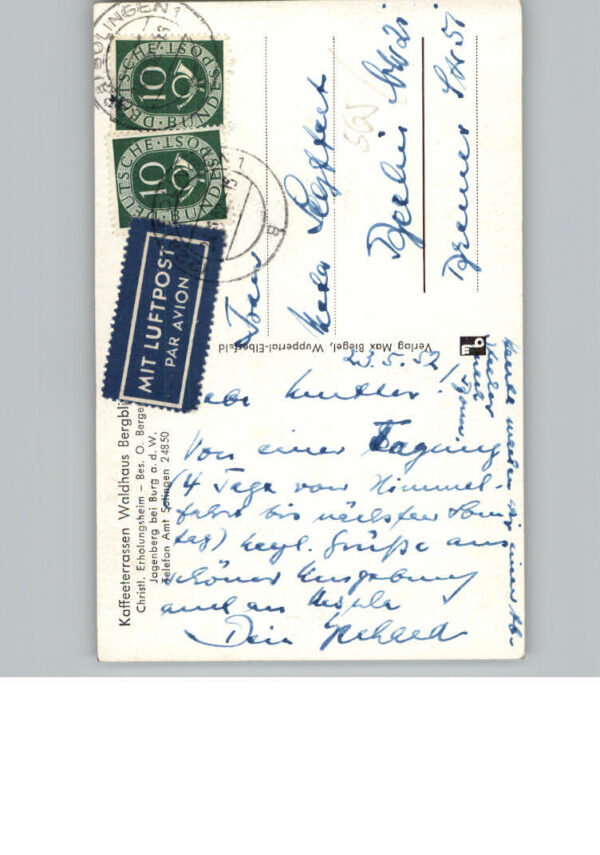 SOLINGEN 1
DEUTSCHE BUNDESPOST
10
DEUTSCHE BUNDESPOST
10
MIT LUFTPOST
PAR AVION
Frau
Berlin
Bremer Str 51
Verlag Max Biegel, Wuppertal-Elberfeld
Kaffeeterrassen Waldhaus Bergbli
Christl. Erholungsheim – Bes. O. Berge
Jagenberg bei Burg a. d. W.
Telefon Amt Solingen 24850
23.5.52
Liebe Mutter!
Von einer Tagung
(4 Tage von Himmel-
fahrt bis nächsten Sonn
tag) herzl. Grüße aus
schöner Umgebung
auch an
Dein Gerhard
Heute machen wir einen